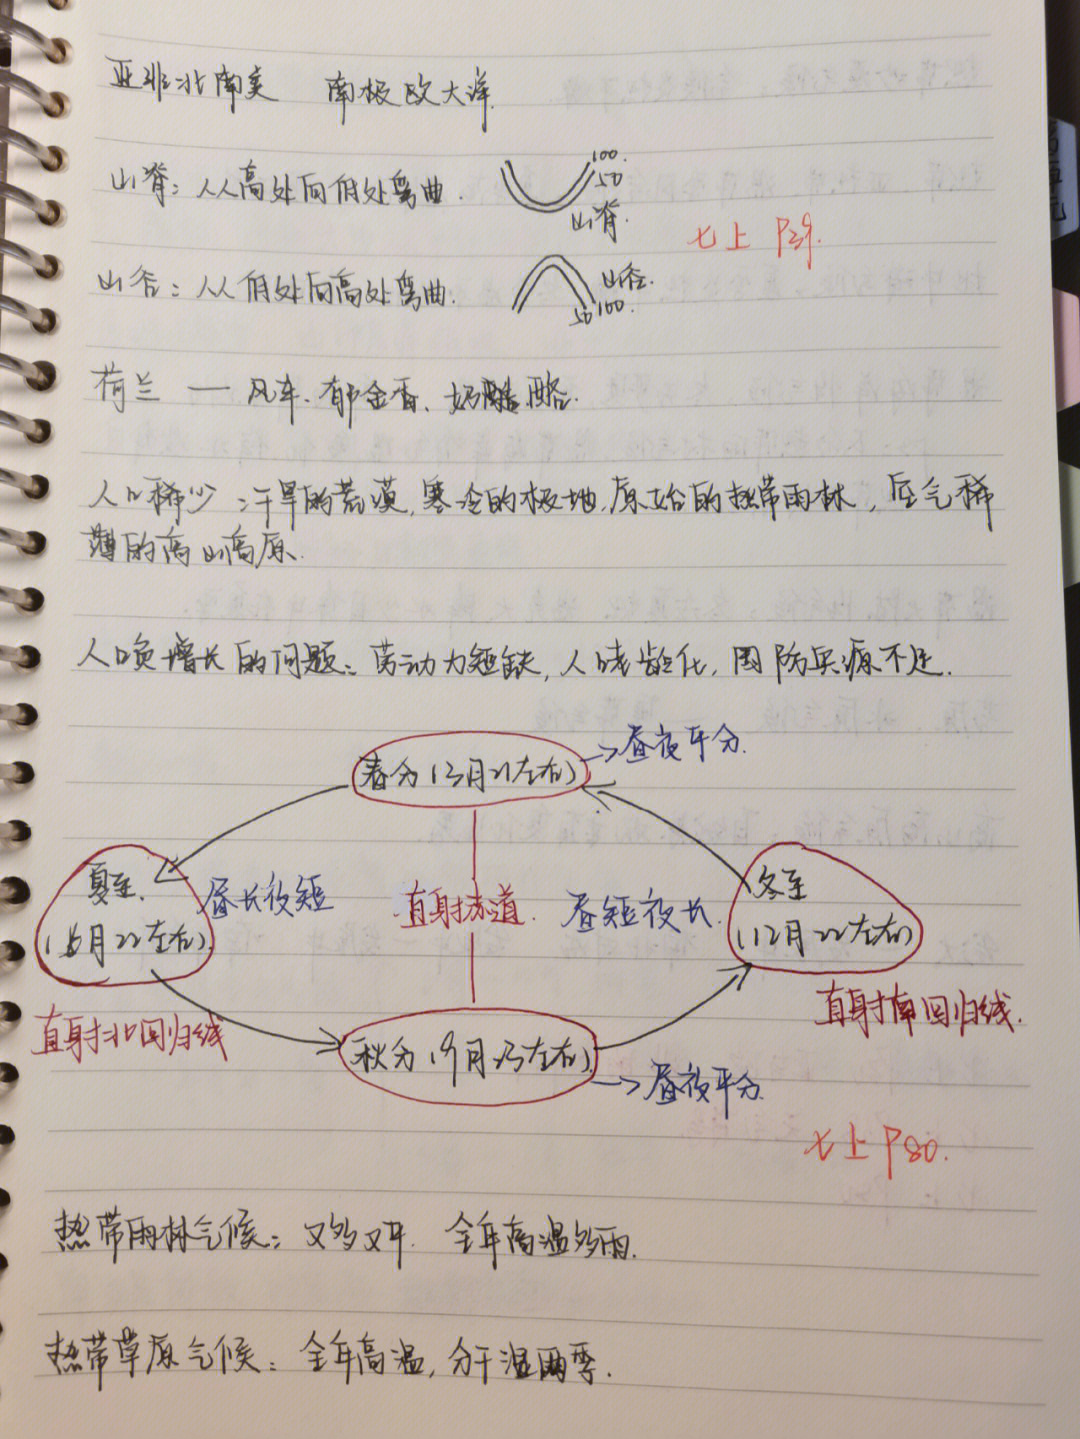 亚非北南美 南极欧大洋.
山脊：从高处向低处弯曲.
100.
50
山脊.
七上 P29.
山谷：从低处向高处弯曲.
山谷.
50 100.
荷兰 — 风车、郁金香、奶酪.
人口稀少：干旱的荒漠,寒冷的极地,原始的热带雨林，空气稀
薄的高山高原.
人口负增长的问题：劳动力短缺,人口老龄化,国防兵源不足.
春分(3月21左右)
→昼夜平分.
夏至.
(6月22左右).
昼长夜短
直射赤道.
昼短夜长.
冬至
(12月22左右)
直射北回归线
直射南回归线.
秋分(9月23左右).
→昼夜平分.
七上 P80.
热带雨林气候：又多又平. 全年高温多雨.
热带草原气候：全年高温,分干湿两季.